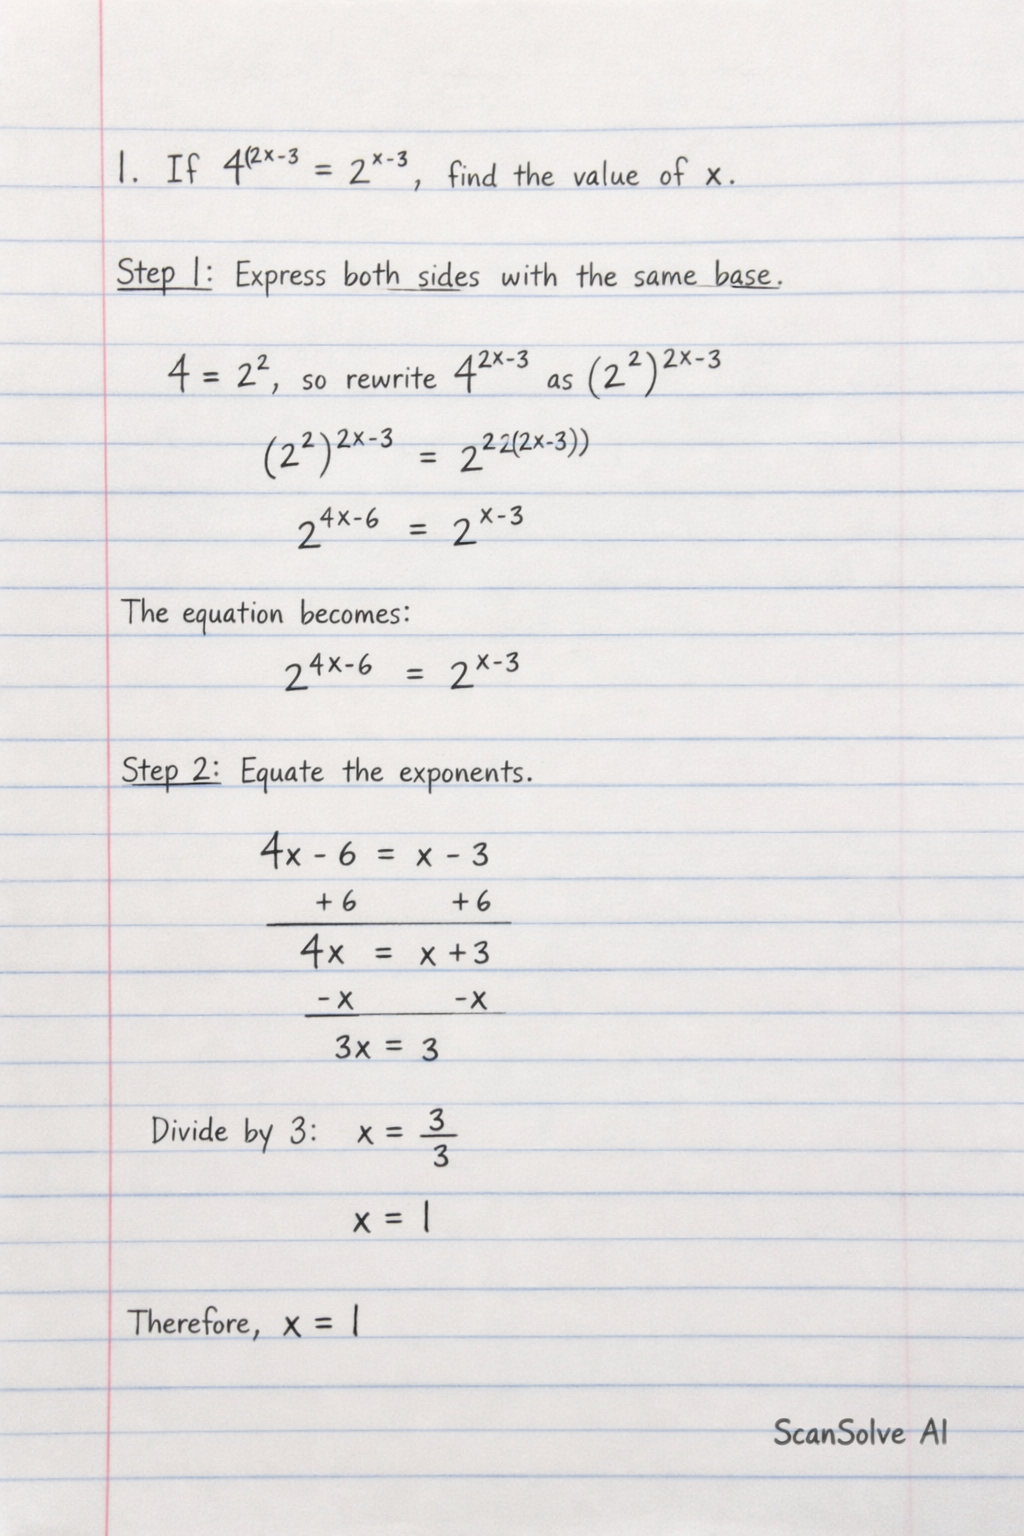 1. If 4^(2x-3 = 2^x-3, find the value of x.
Step 1: Express both sides with the same base.
4 = 2^2, so rewrite 4^2x-3 as (2^2)^2x-3
(2^2)^2x-3 = 2^22(2x-3))
2^4x-6 = 2^x-3
The equation becomes:
2^4x-6 = 2^x-3
Step 2: Equate the exponents.
4x - 6 = x - 3
+ 6 + 6
4x = x + 3
- x - x
3x = 3
Divide by 3: x = 3/3
x = 1
Therefore, x = 1
ScanSolve AI